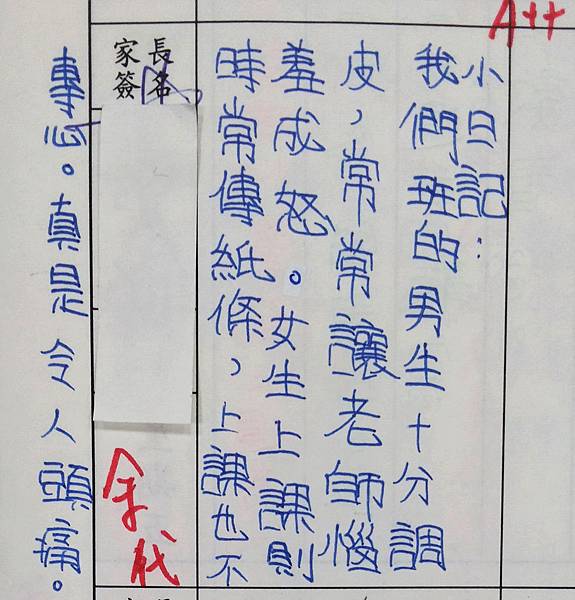 A++
小日記：
我們班的男生十分調
皮，常常讓老師惱
羞成怒。女生上課則
時常傳紙條，上課也不
家長
簽名
專心。真是令人頭痛。